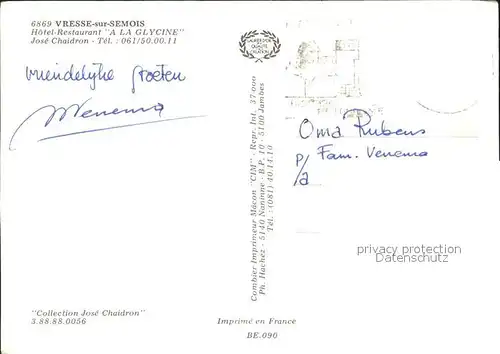 6869 VRESSE-sur-SEMOIS
Hôtel-Restaurant "A LA GLYCINE"
José Chaidron - Tél. : 061/50.00.11
vriendelijke groeten
Venema
Combier Imprimeur Mâcon "CIM" - Repr. Int. 37 000
Ph. Hachez - 5140 Naninne - B.P. 10 - 5100 Jambes
Tél. : (081) 40.14.10
Oma Rubens
p/a Fam. Venema
privacy protection
www.ansichtskarten-center.de
"Collection José Chaidron"
3.88.88.0056
Imprimé en France
BE.090